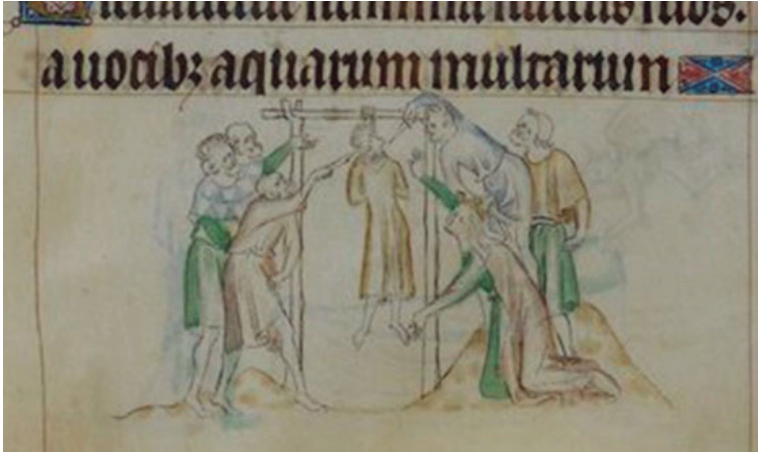 flumina fluctus suos.
a uocibꝫ aquarum multarum